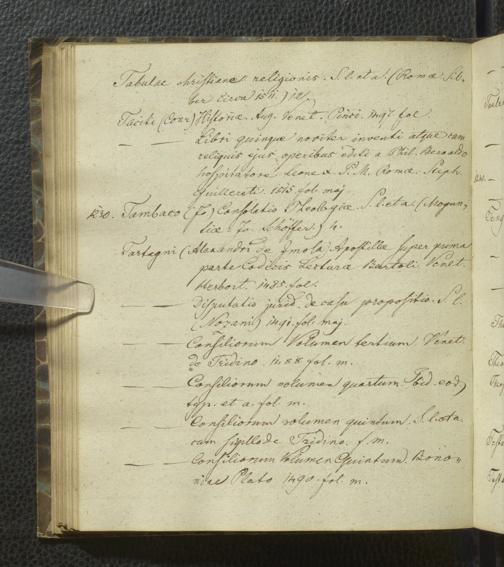 Tabulae christianae religionis. S. l. et a. (Romae Sil-
ber circa 1511.) 12.
Taciti (Corn.) Historiae Aug. Venet. Pinci. 1497 fol.
— — Libri quinque noviter inventi atque cum
reliquis ejus operibus editi a Phil. Beroaldo
hospitatore Leone X. P. M. Romae Steph.
Guillereti. 1515. fol. maj.
1230. Tambaco (Jo) Consolatio Theologiae S. l. et a. (Mogun-
tiae Jo. Schöffer) 4.
Tartagni (Alexandri de Imola) Apostillae super prima
parte Codicis Lecturae Bartoli. Venet.
Herbort. 1485. fol.
— — Disputatio jurid. de casu propositio. S. l.
(Nozani) 1491. fol. maj.
— — Consiliorum Volumen tertium Venet.
de Tridino. 1488 fol. m.
— — Consiliorum volumen quartum Ibid. eod.
typ. et a. fol m.
— — Consiliorum volumen quintum. S. l. et a.
cum sigillo de Tridino. f. m.
— — Consiliorum Volumen Quintum. Bono-
niae Plato 1490. fol. m.